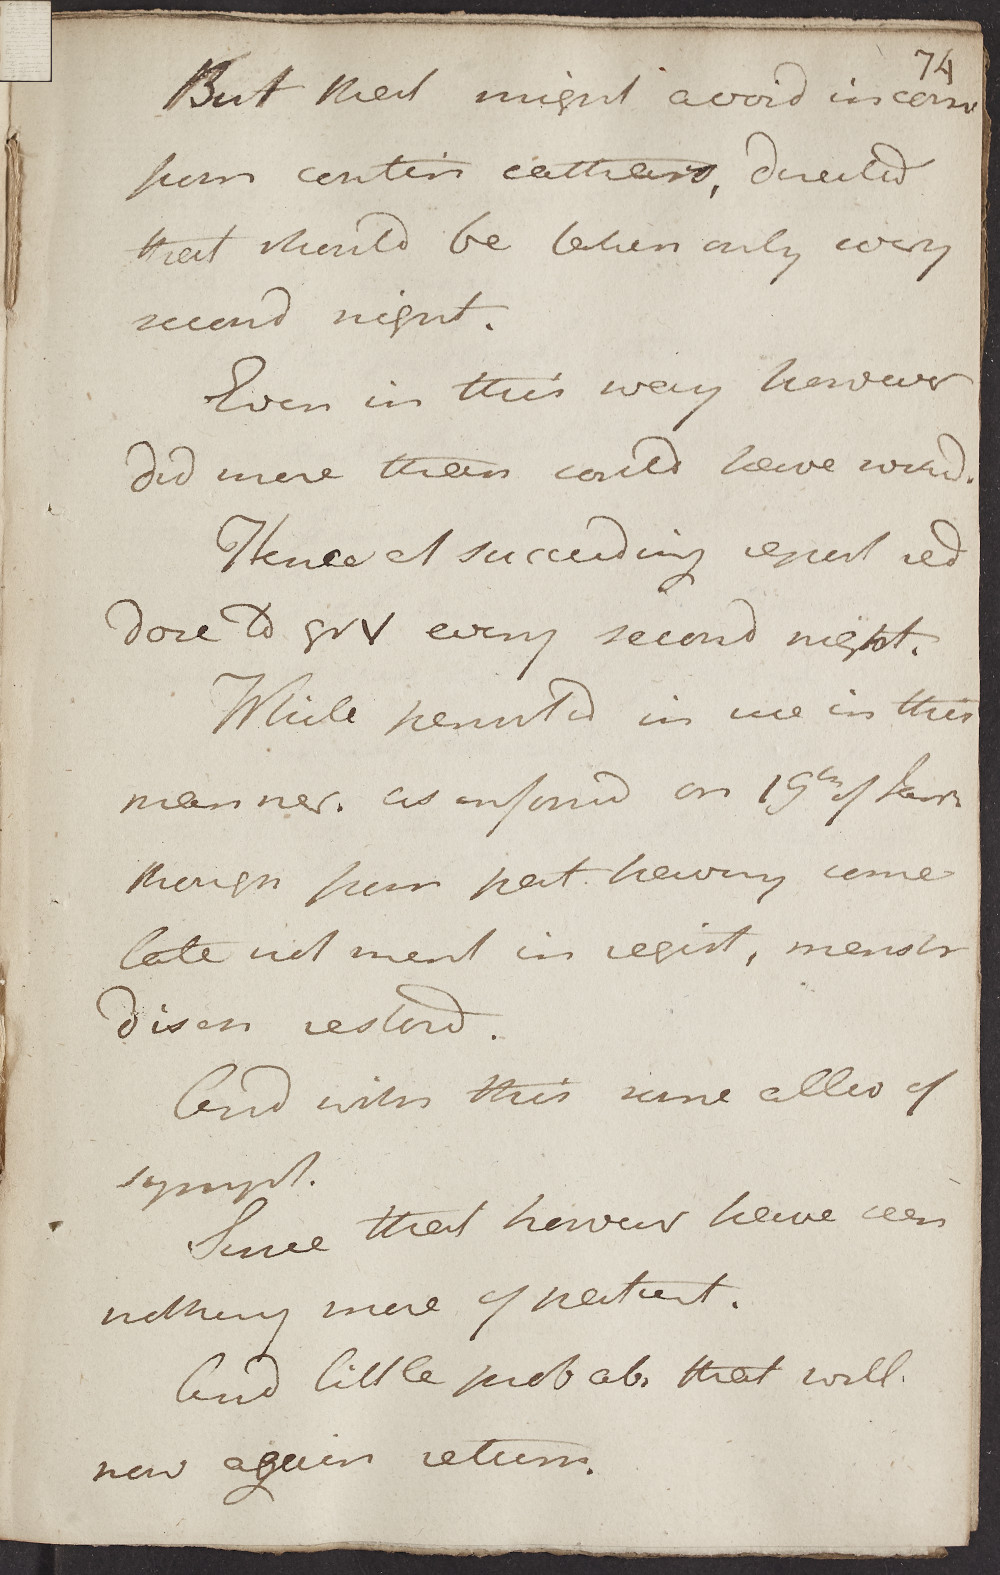 74
But that might avoid inconv
from contin cathars, directed
that should be taken only every
second night.
Even in this way however
did more than could have wishd.
Hence at succeeding report red
dose to gr V every second night.
While persisted in use in this
manner. as informd on 19th of Janr
though from pat. having come
late not ment in regist, menstr
disch restord.
And with this some allev of
sympt.
Since that however have seen
nothing more of patient.
And little probab. that will
now again return.